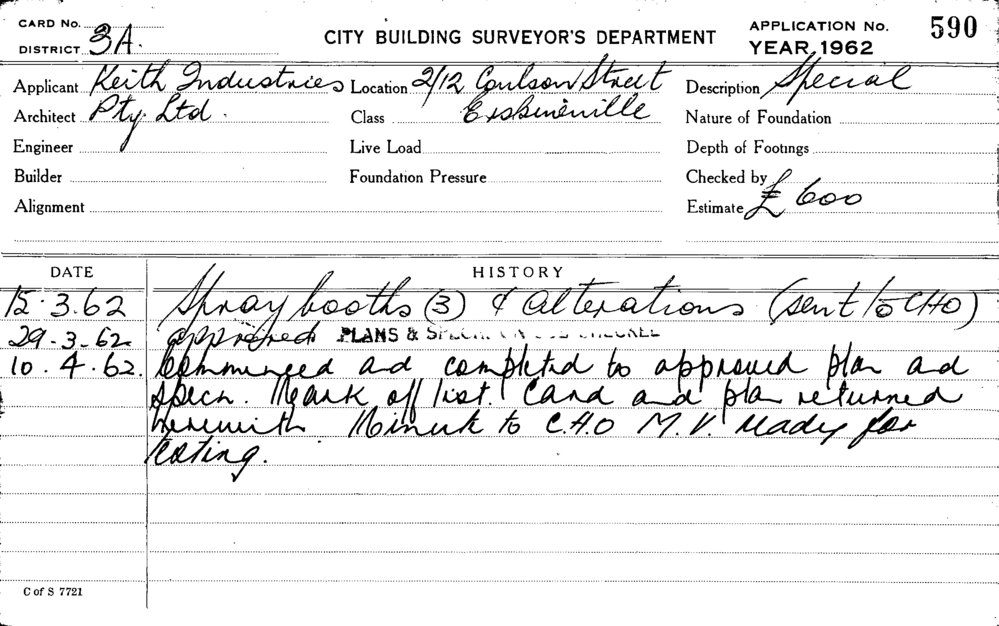 CARD No.
DISTRICT 3A.
CITY BUILDING SURVEYOR'S DEPARTMENT
APPLICATION No. 590
YEAR, 1962
Applicant Keith Industries Location 2/12 Coulson Street Description Special
Architect Pty. Ltd. Class Erskineville Nature of Foundation
Engineer Live Load Depth of Footings
Builder Foundation Pressure Checked by
Alignment Estimate £ 600
DATE HISTORY
15.3.62 Spray booths (3) & alterations (sent to CHO)
29.3.62 approved PLANS &
10.4.62. Commenced and completed to approved plan and
specn. Mark off list. Card and plan returned
herewith. Minute to C.H.O M.V. ready for
testing.
C of S 7721